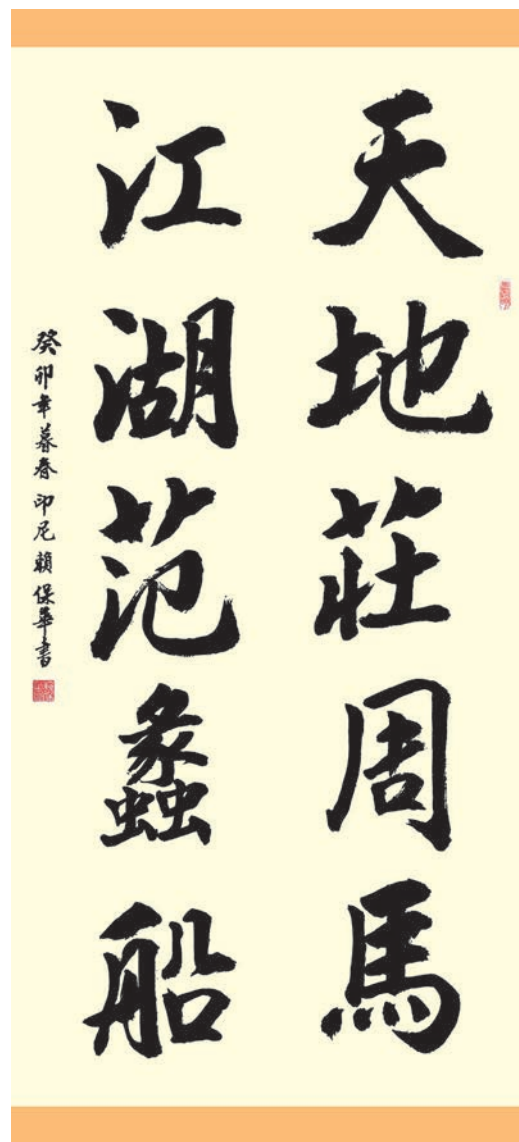 天地莊周馬
江湖范蠡船
癸卯年暮春 印尼 賴保華書